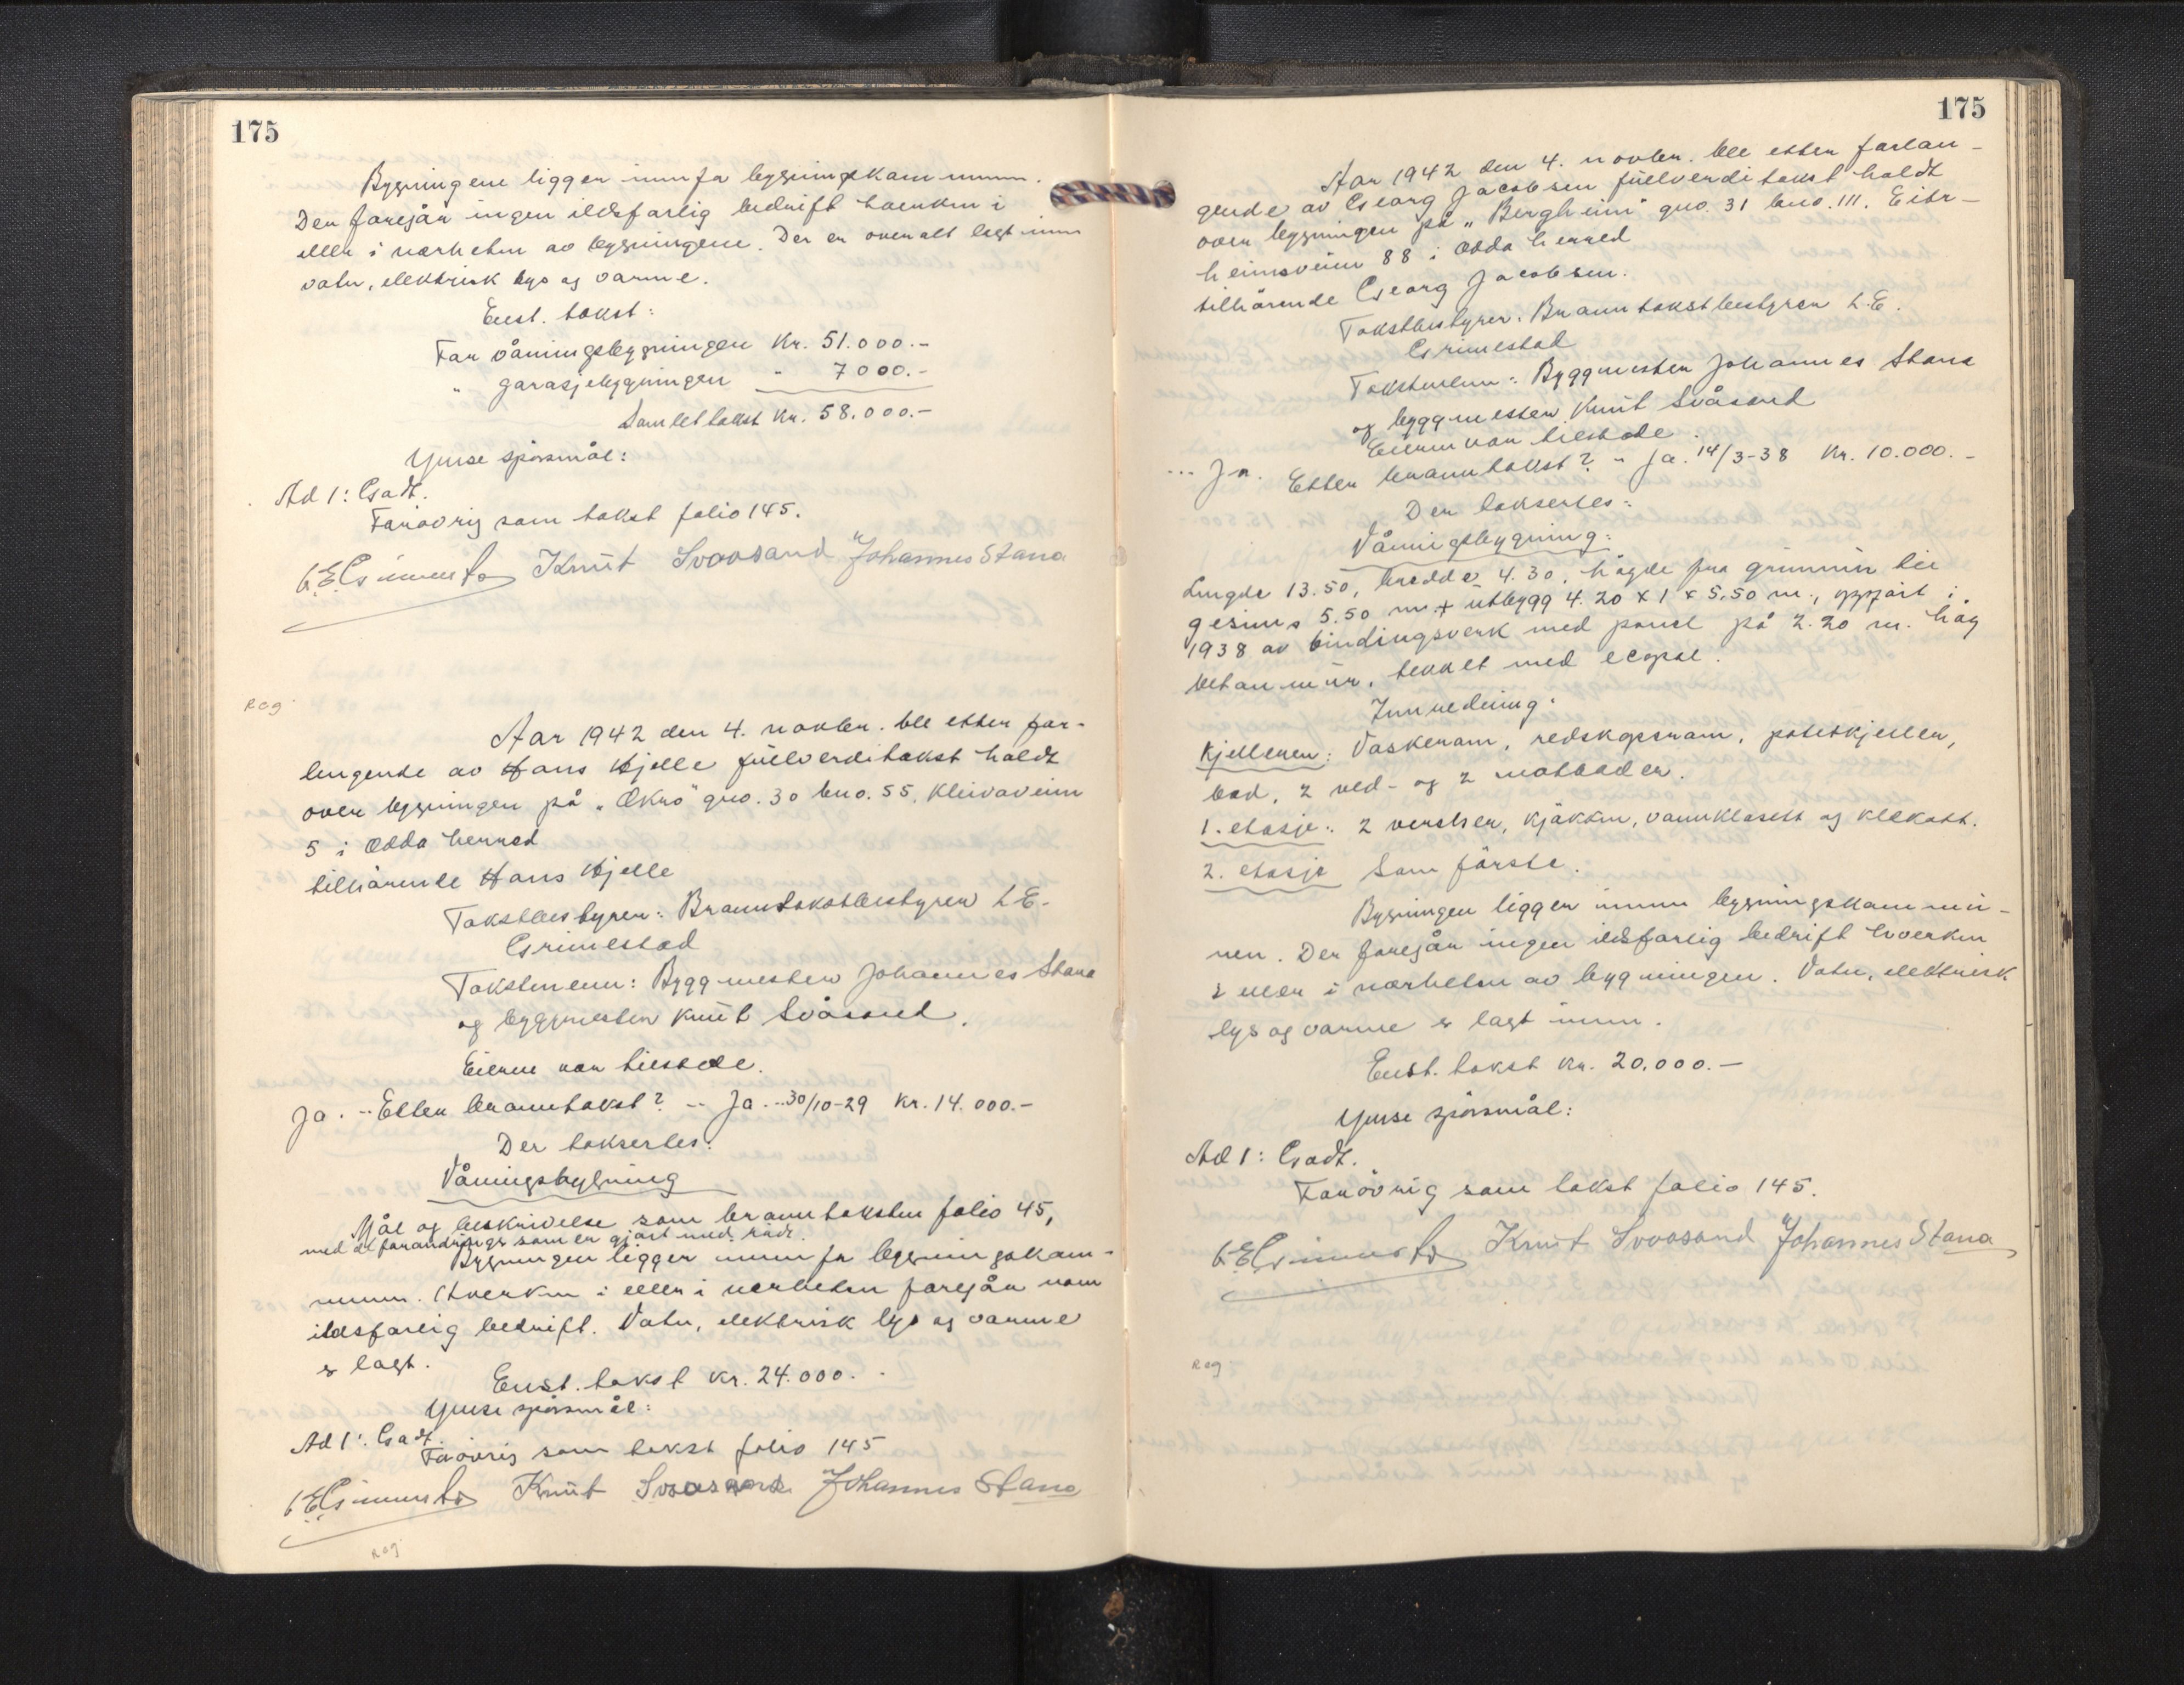 175
Bygningene ligger innfa bygningskommunen.
Der foregår ingen ildsfarlig bedrift hverken i
eller i nærheten av bygningene. Der er overalt lagt inn
vatn, elektrisk lys og varme.
Enst. takst:
For våningsbygningen Kr. 51.000.-
" garasjebygningen " 7000.-
Samlet takst Kr. 58.000.-
Ymse spörsmål:
Ad 1: Godt.
Forövrig som takst folio 145.
L.E. Grimestad Knut Svaasand Johannes Stana
Reg
Aar 1942 den 4. novbr. ble etter for-
langende av Hans Hjelle fullverditakst holdt
over bygningen på "Ökro" gno. 30 bno. 55, Kleivaveien
5 i Odda herred
tilhörende Hans Hjelle
Takstbestyrer: Branntakstbestyrer L.E.
Grimestad
Takstmenn: Byggmester Johannes Stana
og byggmester Knut Svåsand.
Eieren var tilstede.
Ja. -- Eller branntakst? -- Ja. -- 30/10-29 Kr. 14.000.-
Der takseres:
Våningsbygning
Mål og beskrivelse som branntaksten folio 45,
med de forandringer som er gjort med rådt.
Bygningen ligger innfa bygningskom-
munen. Hverken i eller i nærheten foregår noen
ildsfarlig bedrift. Vatn, elektrisk lys og varme
er lagt.
Enst. takst Kr. 24.000.-
Ymse spörsmål:
Ad 1: Godt.
Forövrig som takst folio 145
L.E. Grimestad Knut Svaasand Johannes Stana
Reg
175
Aar 1942 den 4. novbr. ble etter forlan-
gende av Georg Jacobsen fullverditakst holdt
over bygningen på "Bergheim" gno. 31 bno. 111. Eitr-
heimsveien 88 i Odda herred
tilhörende Georg Jacobsen.
Takstbestyrer: Branntakstbestyrer L.E.
Grimestad
Takstmenn: Byggmester Johannes Stana
og byggmester Knut Svåsand
Eieren var tilstede.
... Ja. Etter branntakst? -- Ja. 14/3-38 Kr. 10.000.-
Der takseres:
Våningsbygning:
Lengde 13.50, bredde 4.30, högde fra grunnen til
gesims 5.50 m. + utbygg 4.20 x 1 x 5.50 m., oppfört i
1938 av bindingsverk med panel på 2.20 m. høg
betonmur, tekket med ecopal.
Innredning:
Kjelleren: Vaskerom, redskapsrom, potetkjeller,
bad, 2 ved- og 2 matboder.
1. etasje: 2 verelser, kjökken, vannklosett og klekott.
2. etasje Som förste.
Bygningen ligger innen bygningskommu-
nen. Der foregår ingen ildsfarlig bedrift hverken
i eller i nærheten av bygningen. Vatn, elektrisk
lys og varme er lagt inn.
Enst. takst Kr. 20.000.-
Ymse spörsmål:
Ad 1: Godt.
Forövrig som takst folio 145.
L.E. Grimestad Knut Svaasand Johannes Stana
Reg